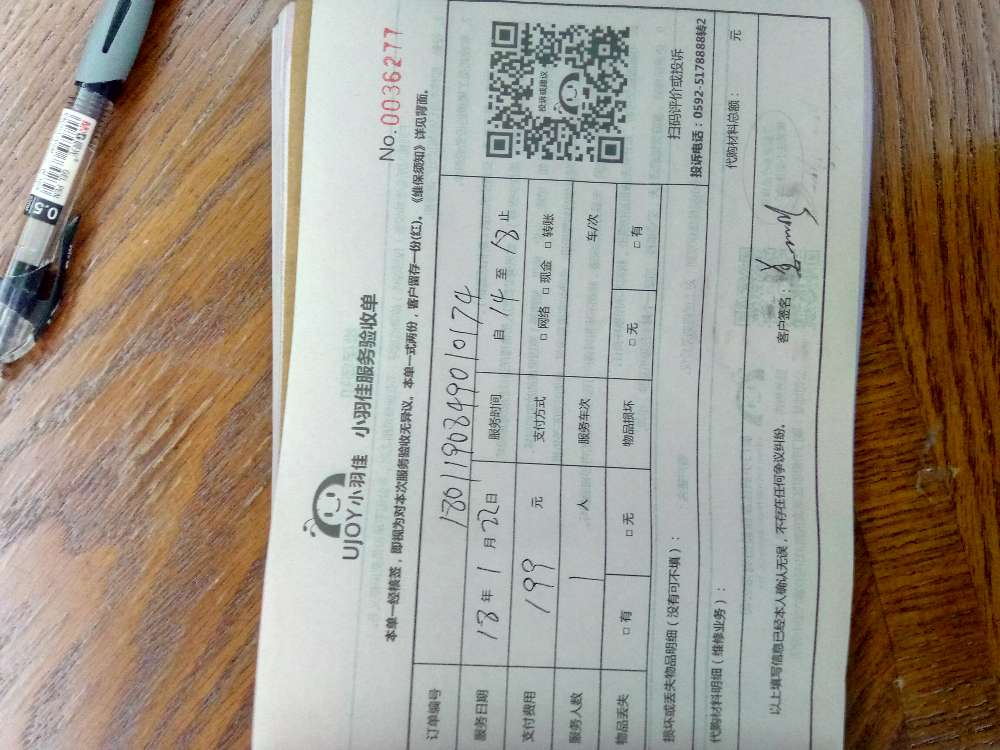 UJOY小羽佳 小羽佳服务验收单
No.0036277
本单一经核签，即视为对本次服务验收无异议。本单一式两份，客户留存一份(红)。《维保须知》详见背面。
订单编号 1801190849010174
服务日期 18年1月22日 服务时间 自14至18止
支付费用 199元 支付方式 □网络 □现金 □转账
服务人数 1人 服务车次 车/次
物品丢失 □有 □无 物品损坏 □无 □有
投诉或建议
扫码评价或投诉
投诉电话：0592-5178888转2
损坏或丢失物品明细（没有可不填）：
代购材料明细（维修业务）： 代购材料总额： 元
以上填写信息已经本人确认无误，不存在任何争议纠纷。 客户签名：
0.5